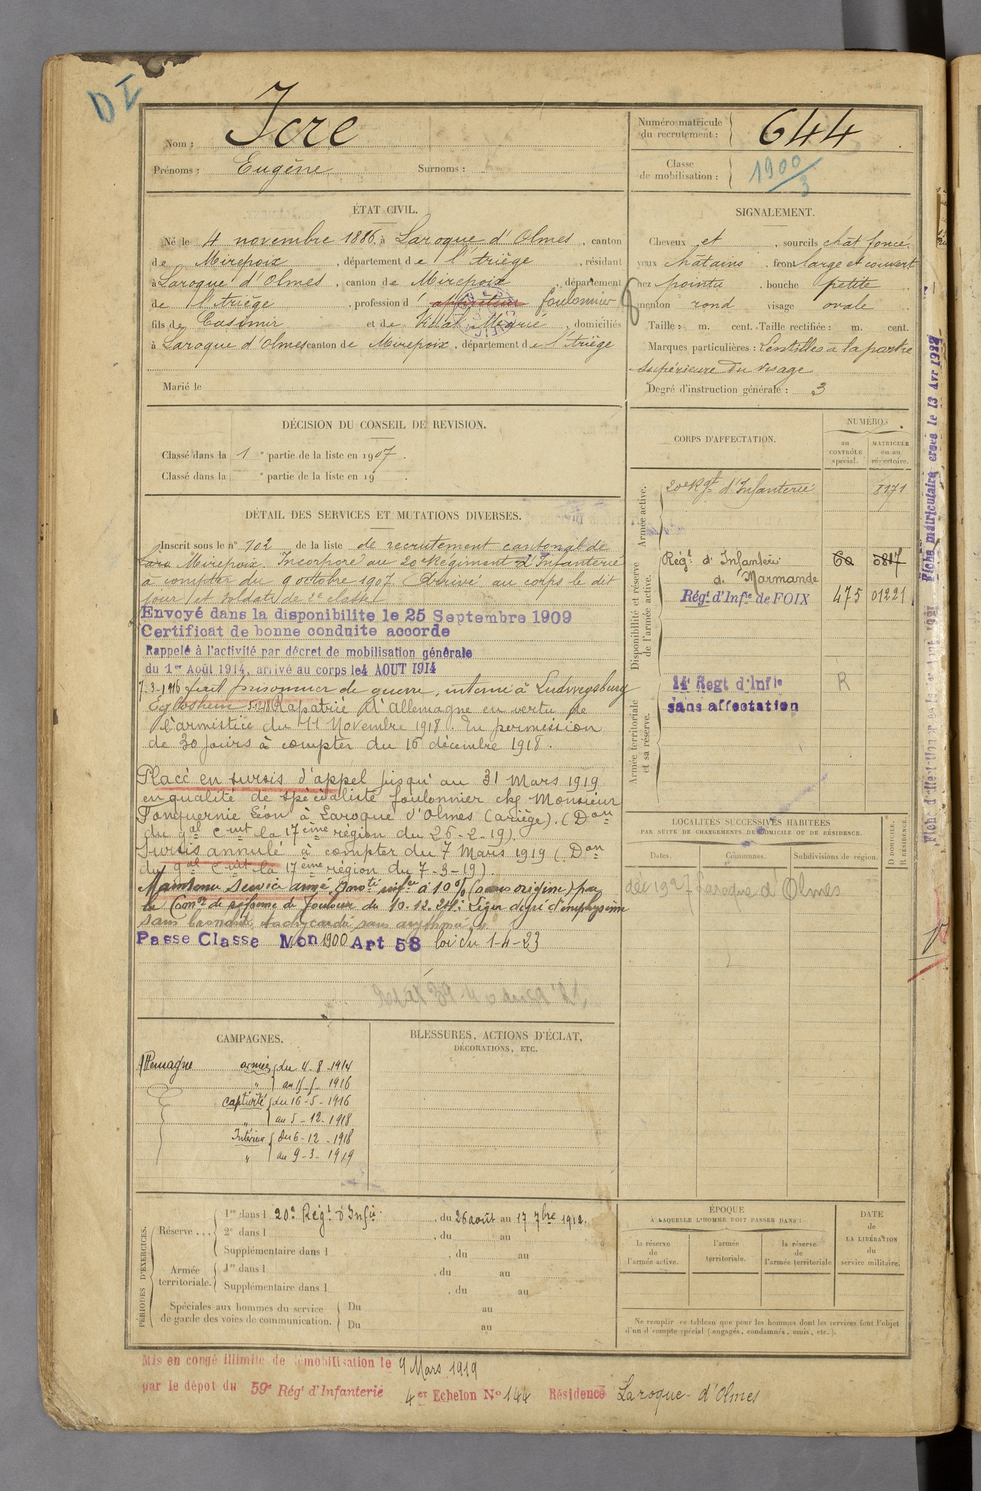 DI
Nom : Icre
Prénoms : Eugène Surnoms :
Numéro matricule du recrutement : 644
Classe de mobilisation : 1900/3
ÉTAT CIVIL.
Né le 4 novembre 1886, à Laroque d'Olmes, canton
de Mirepoix, département de l'Ariège, résidant
à Laroque d'Olmes, canton de Mirepoix, département
de l'Ariège, profession d' foulonnier
fils de Casimir et de Vidal Marie, domiciliés
à Laroque d'Olmes canton de Mirepoix, département de l'Ariège
Marié le
SIGNALEMENT.
Cheveux et , sourcils chat foncé
yeux châtains , front large et couvert
nez pointu , bouche petite
menton rond visage ovale
Taille : m. cent. Taille rectifiée : m. cent.
Marques particulières : Lentilles à la partie
supérieure du visage
Degré d'instruction générale : 3
DÉCISION DU CONSEIL DE REVISION.
Classé dans la 1 e partie de la liste en 1907.
Classé dans la e partie de la liste en 19 .
DÉTAIL DES SERVICES ET MUTATIONS DIVERSES.
Inscrit sous le n° 102 de la liste de recrutement cantonal de
Mirepoix. Incorporé au 20e Régiment d'Infanterie
à compter du 9 octobre 1907. Arrivé au corps le dit
jour et soldat de 2e classe
Envoyé dans la disponibilite le 25 Septembre 1909
Certificat de bonne conduite accorde
Rappelé à l'activité par décret de mobilisation générale
du 1er Août 1914, arrivé au corps le 4 AOUT 1914
fait prisonnier de guerre, interné à Ludwigsburg
Eglosheim Rapatrié d'Allemagne en vertu de
l'armistice du 11 Novembre 1918. En permission
de 30 jours à compter du 16 décembre 1918.
Placé en sursis d'appel jusqu'au 31 Mars 1919
en qualité de spécialiste foulonnier chez Monsieur
Fonquernie Léon à Laroque d'Olmes (Ariège). (Don
du gal Cmt la 17ème région du 26-2-19).
Sursis annulé à compter du 7 Mars 1919 (Don
du gal Cmt la 17ème région du 7-3-19).
Maintenu Service armé à 10% (sans origine) par
la Comon de réforme de Toulouse du 10.12.24 : Léger degré d'emphysème
sans bronchite, tachycardie sans arythmie
Passe Classe Mon 1900 Art 58 loi du 1-4-23
CORPS D'AFFECTATION.
NUMÉROS
au CONTRÔLE spécial.
MATRICULE ou au répertoire.
Armée active.
20e Rgt d'Infanterie 8171
Disponibilité et réserve de l'armée active.
Régt d'Infanterie
de Marmande
Régt d'Infie de FOIX 475 01221
Armée territoriale et sa réserve.
14e Regt d'Infie R
sans affectation
LOCALITÉS SUCCESSIVES HABITÉES
PAR SUITE DE CHANGEMENTS DE DOMICILE OU DE RÉSIDENCE.
Dates. Communes. Subdivisions de région. D DOMICILE. R RÉSIDENCE.
Laroque d'Olmes
CAMPAGNES.
Allemagne armées du 4-8-1914
1916
captivité du 16-5-1916
" au 5-12-1918
Intérieur du 6-12-1918
" au 9-3-1919
BLESSURES, ACTIONS D'ÉCLAT,
DÉCORATIONS, ETC.
PÉRIODES D'EXERCICES.
Réserve ... 1re dans l 20e Régt d'Infie , du 26 août au 17 7bre 1912.
2e dans l , du au
Supplémentaire dans l , du au
Armée territoriale. 1re dans l , du au
Supplémentaire dans l , du au
Spéciales aux hommes du service de garde des voies de communication. Du au
Du au
ÉPOQUE
A LAQUELLE L'HOMME DOIT PASSER DANS :
la réserve de l'armée active.
l'armée territoriale.
la réserve de l'armée territoriale
DATE de LA LIBÉRATION du service militaire.
Ne remplir ce tableau que pour les hommes dont les services font l'objet
d'un compte spécial (engagés, condamnés, omis, etc.).
Mis en congé illimité de démobilisation le 9 Mars 1919
par le dépot du 59e Régt d'Infanterie 4er Echelon No 144 Résidence Laroque-d'Olmes